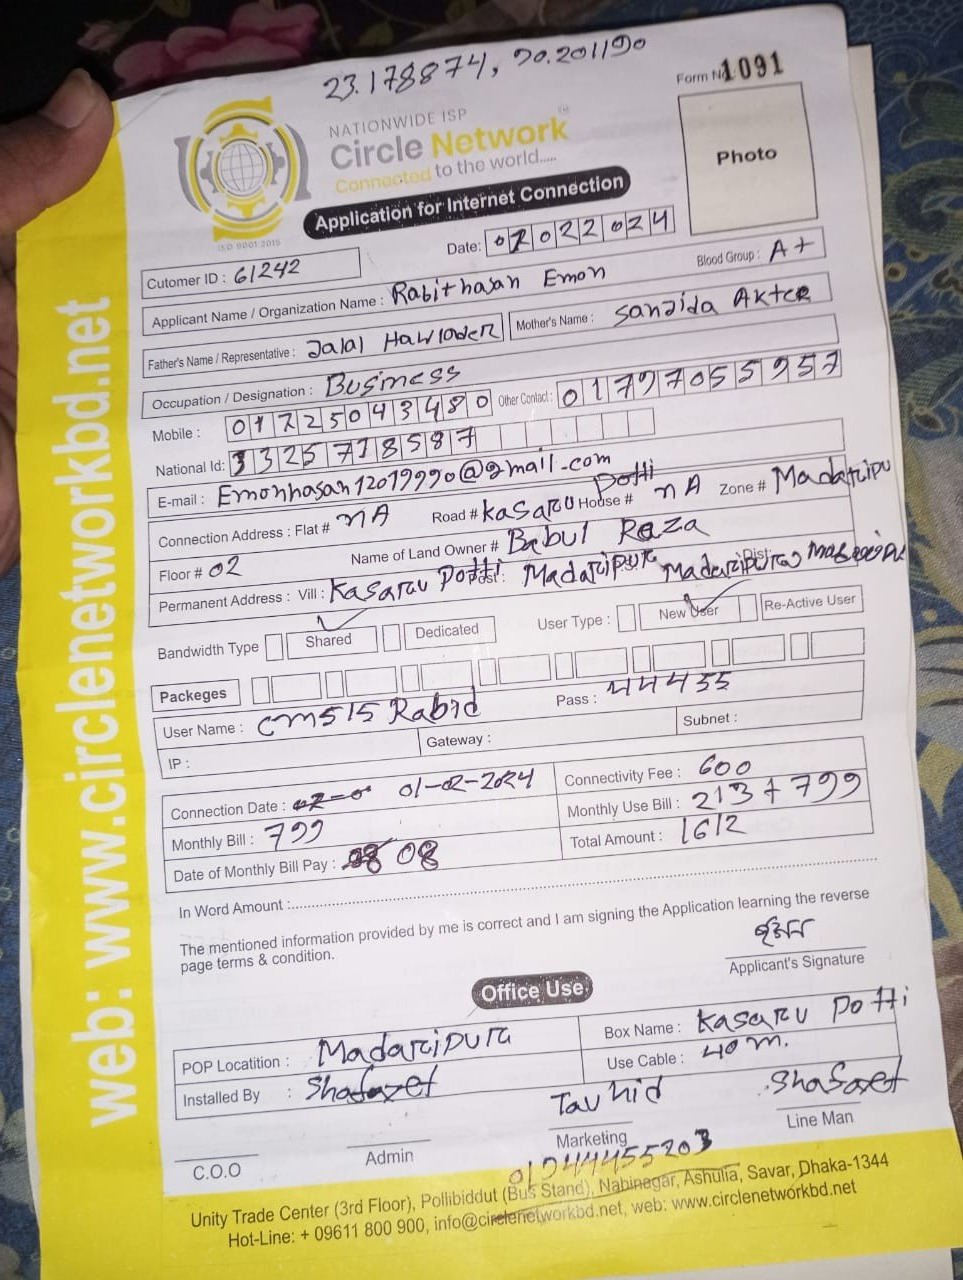 23.178874, 90.201190
Form No 1091
NATIONWIDE ISP
Circle Network
Connected to the world.....
ISO 9001:2015
Photo
Application for Internet Connection
Date: 07022024
Cutomer ID : 61242
Blood Group : A+
Applicant Name / Organization Name : Rabithasan Emon
Father's Name / Representative : Jalal Hawlader Mother's Name : Sanzida Akter
Occupation / Designation : Business
Mobile : 01725043480 Other Contact : 01797055957
National Id: 3325718587
E-mail : Emonhasan12019990@gmail.com
Connection Address : Flat # NA Road # Kasaru Potti House # NA Zone # Madaripu
Floor # 02 Name of Land Owner # Babul Raza
Permanent Address : Vill : Kasaru Potti Post: Madaripur Madaripur Dist
Bandwidth Type Shared Dedicated User Type : New User Re-Active User
Packeges
User Name : cm515 Rabid Pass : 44455
IP : Gateway : Subnet :
Connection Date : 01-02-2024 Connectivity Fee : 600
Monthly Bill : 799 Monthly Use Bill : 213 + 799
Date of Monthly Bill Pay : 08 Total Amount : 1612
In Word Amount :
The mentioned information provided by me is correct and I am signing the Application learning the reverse
page terms & condition.
Applicant's Signature
Office Use
POP Locatition : Madaripur Box Name : Kasaru Potti
Installed By : Shafayet Use Cable : 40 m.
Tauhid Shafayet
C.O.O Admin Marketing Line Man
Unity Trade Center (3rd Floor), Pollibiddut (Bus Stand), Nabinagar, Ashulia, Savar, Dhaka-1344
Hot-Line: + 09611 800 900, info@circlenetworkbd.net, web: www.circlenetworkbd.net
web: www.circlenetworkbd.net